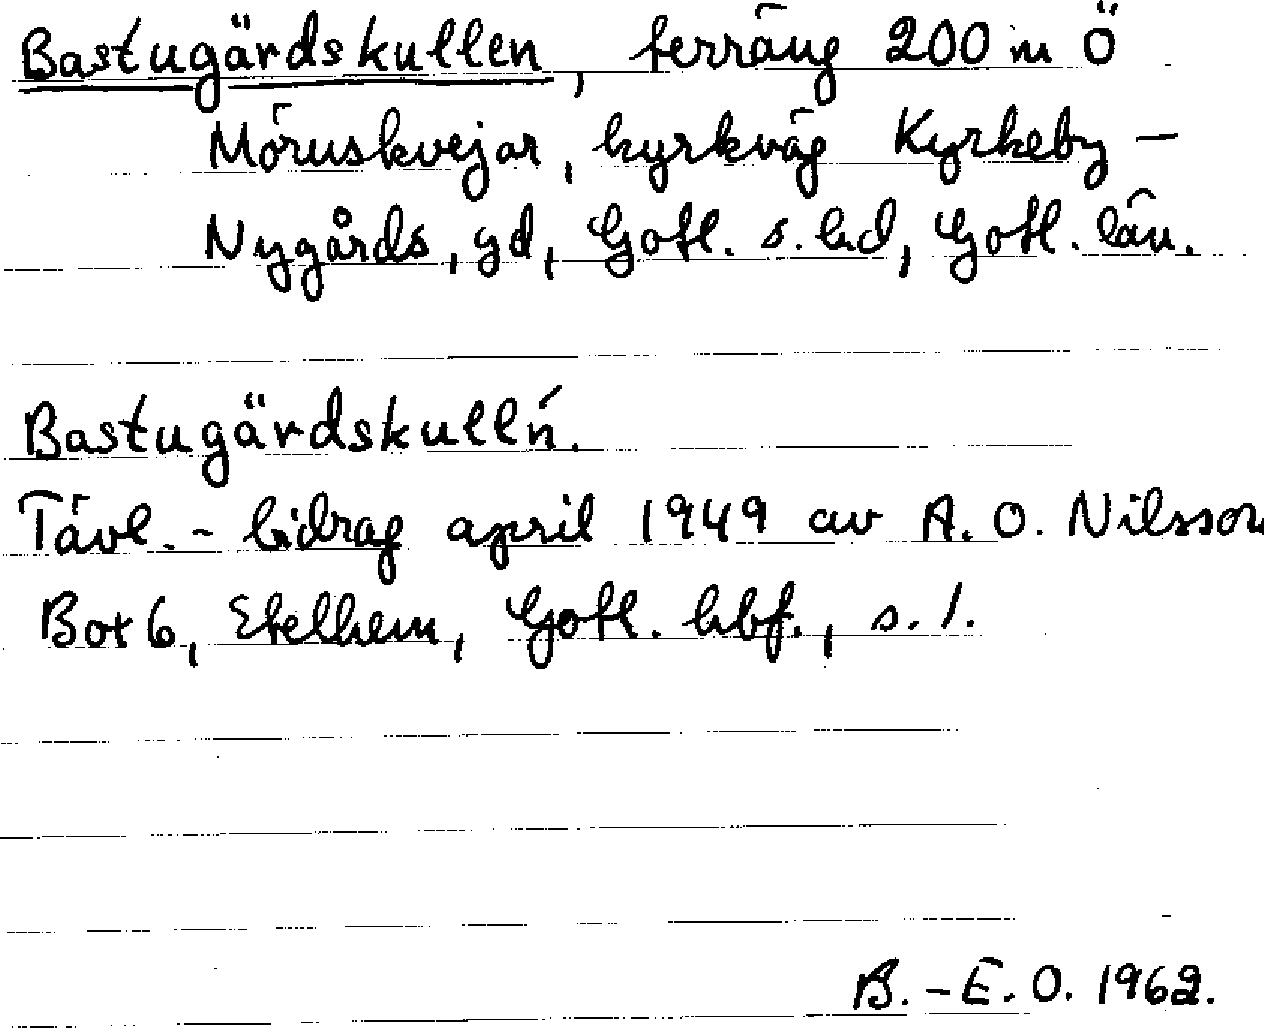 Bastugärdskullen, terräng 200 m Ö
Möruskvejar, kyrkväg Kyrkeby -
Nygårds, gd, Gotl. s. hd, Gotl. län.
Bastugärdskulln´.
Tävl.- bidrag april 1949 av A. O. Nilsson
Box 6, Etelhem, Gotl. hbf., s. 1.
B. - E. O. 1962.